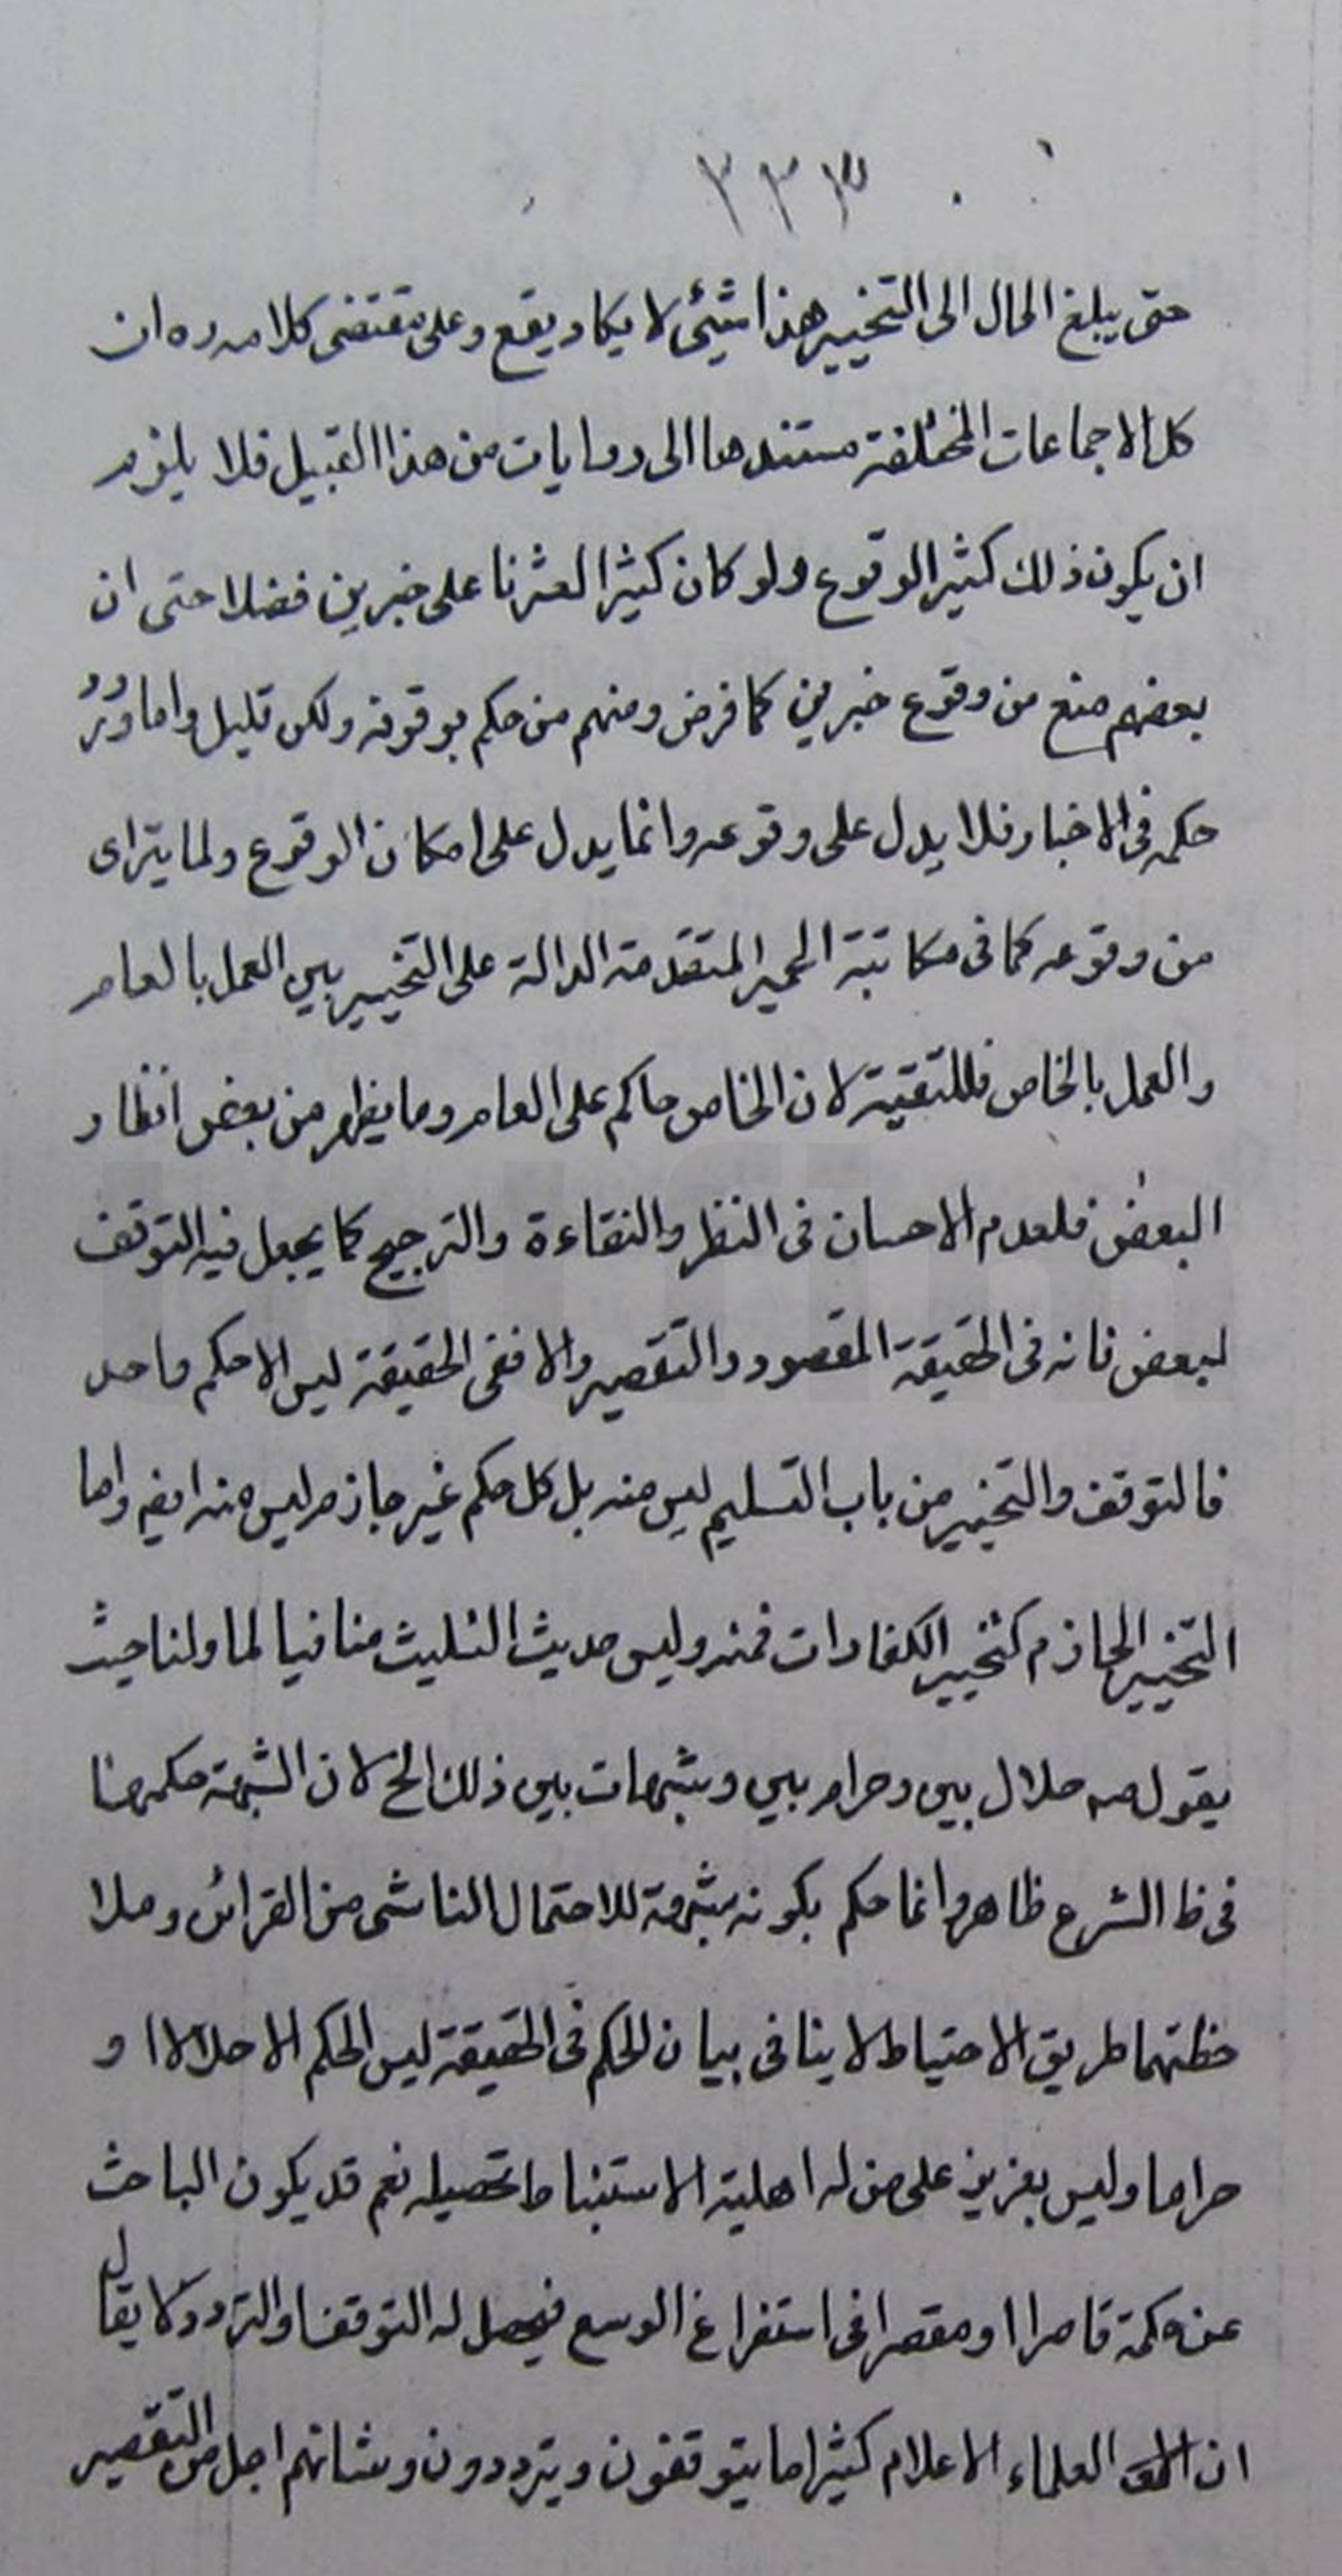 ٣٣٣
حتى يبلغ الحال الى التخيير هذا شيئى لا يكاد يقع وعلى مقتضى كلامه ره ان
كل الاجماعات المختلفة مستندها الى روايات من هذا القبيل فلا يلزم
ان يكون ذلك كثير الوقوع ولو كان كثيرا لعثرنا على خبرين فضلا حتى ان
بعضهم منع من وقوع خبرين كما فرض ومنهم من حكم بوقوفه ولكن قليل واما ورود
حكمه فى الاخبار فلا يدل على وقوعه وانما يدل على امكان الوقوع ولما يترائ
من وقوعه كما فى مكاتبة الحمير المتقدمة الدالة على التخيير بين العمل بالعام
والعمل بالخاص فللتقية لان الخاص حاكم على العام وما يظهر من بعض انظار
البعض فلعدم الاحسان فى النظر والنقاءة والترجيح كما يجعل فيه التوقف
لبعض فانه فى الحقيقة المقصود والتقصير والا ففى الحقيقة ليس الا حكم واحد
فالتوقف والتخيير من باب التسليم ليس منه بل كل حكم غير جازم ليس منه ايضا واما
التخيير الجازم كتخيير الكفارات فمنه وليس حديث التثليث منافيا لما ولنا حيث
يقول صه حلال بين وحرام بين وشبهات بين ذلك الخ لان الشبهة حكمها
فى ظ الشرع ظاهر وانما حكم بكونه شبهة للاحتمال الناشى من القرائن وملا
حظتهما طريق الاحتياط لا ينافى بيان الحكم فى الحقيقة ليس الحكم الا حلالا او
حراما وليس بعزيز على من له اهلية الاستنباط تحصيله نعم قد يكون الباحث
عن حكمة قاصرا او مقصرا فى استفراغ الوسع فيحصل له التوقف والتردد كما يقال
ان العلماء الاعلام كثيرا ما يتوقفون ويترددون وشانهم اجل من التقصير